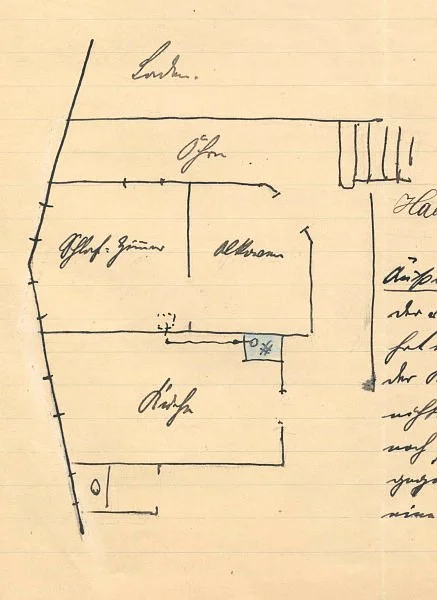 Laden.
Öhrn
Schlaf-Zimmer
Alkoven
Küche
Hal
Äuß
der
hat
der
nicht
noch
gege
eine